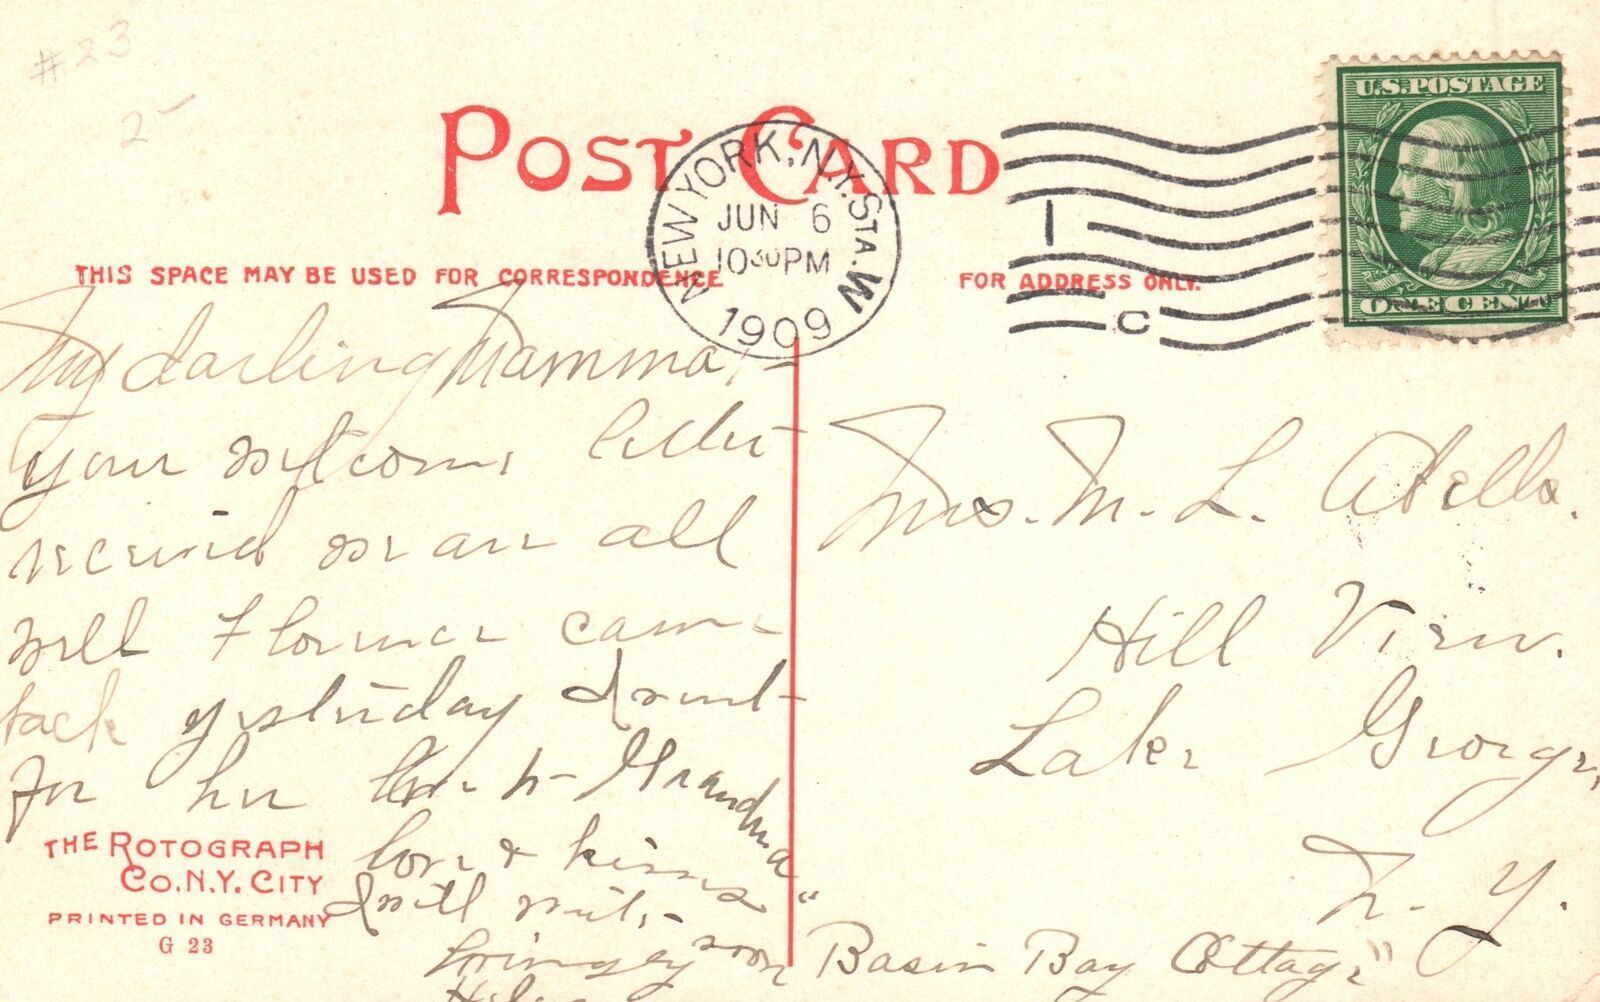 #23
2-
POST CARD
U.S. POSTAGE
ONE CENT
NEW YORK, N.Y. STA. W
JUN 6
10 30 PM
1909
1
C
THIS SPACE MAY BE USED FOR CORRESPONDENCE
FOR ADDRESS ONLY.
My darling Mamma,-
your welcome letter
received we are all
well Florence came
back yesterday I went
for her Love to Grandma
love & kisses
I will write
soon
Mrs. M. L. Abella.
Hill View.
Lake George,
N. Y.
"Basin Bay Cottage"
THE ROTOGRAPH
CO. N.Y. CITY
PRINTED IN GERMANY
G 23